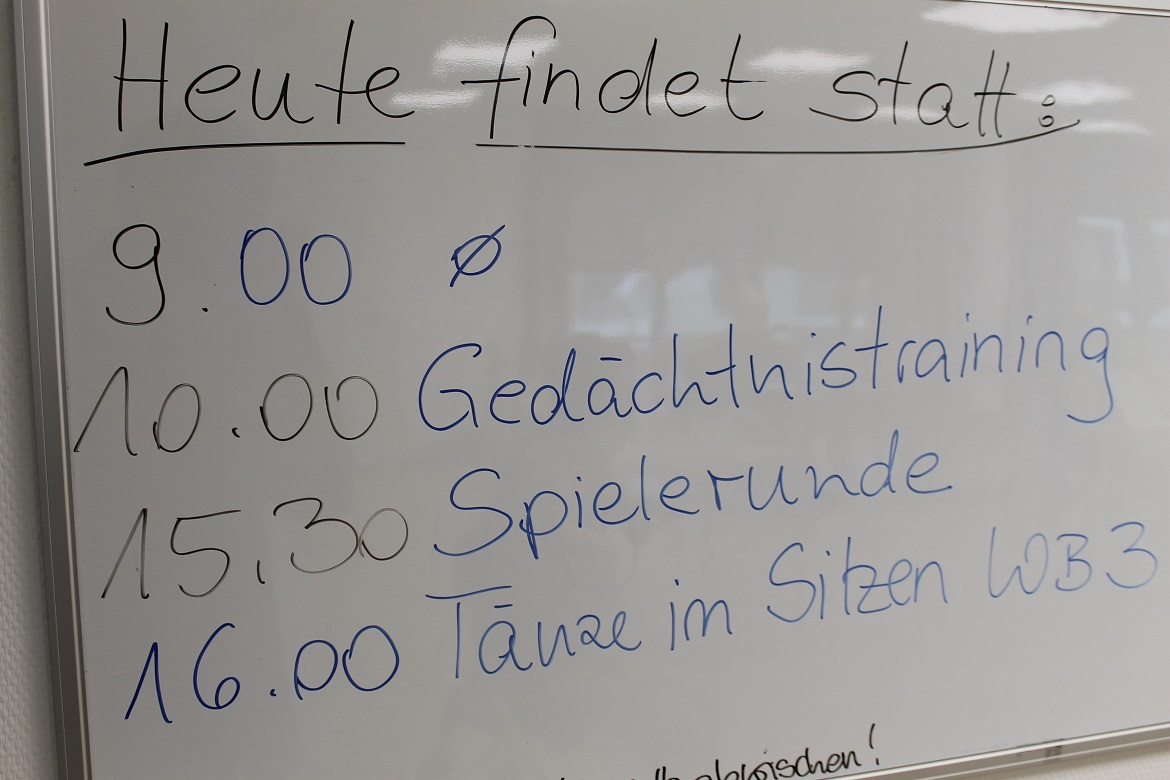 Heute findet statt:
9.00 ∅
10.00 Gedächtnistraining
15.30 Spielerunde
16.00 Tänze im Sitzen WB3